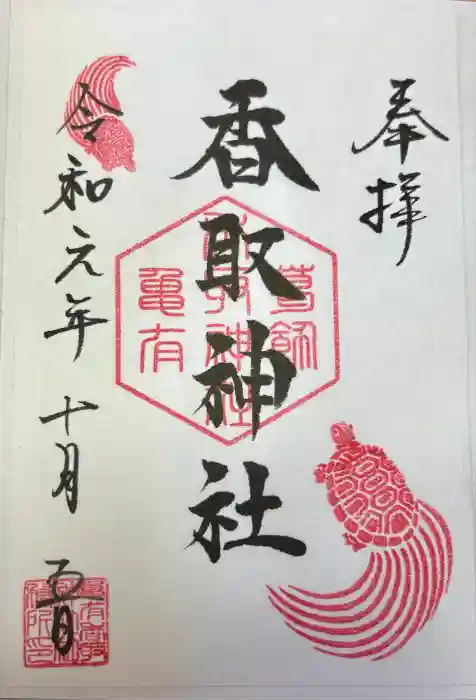 奉拝
葛飾
香取神社
亀有
香取神社
令和元年十月五日